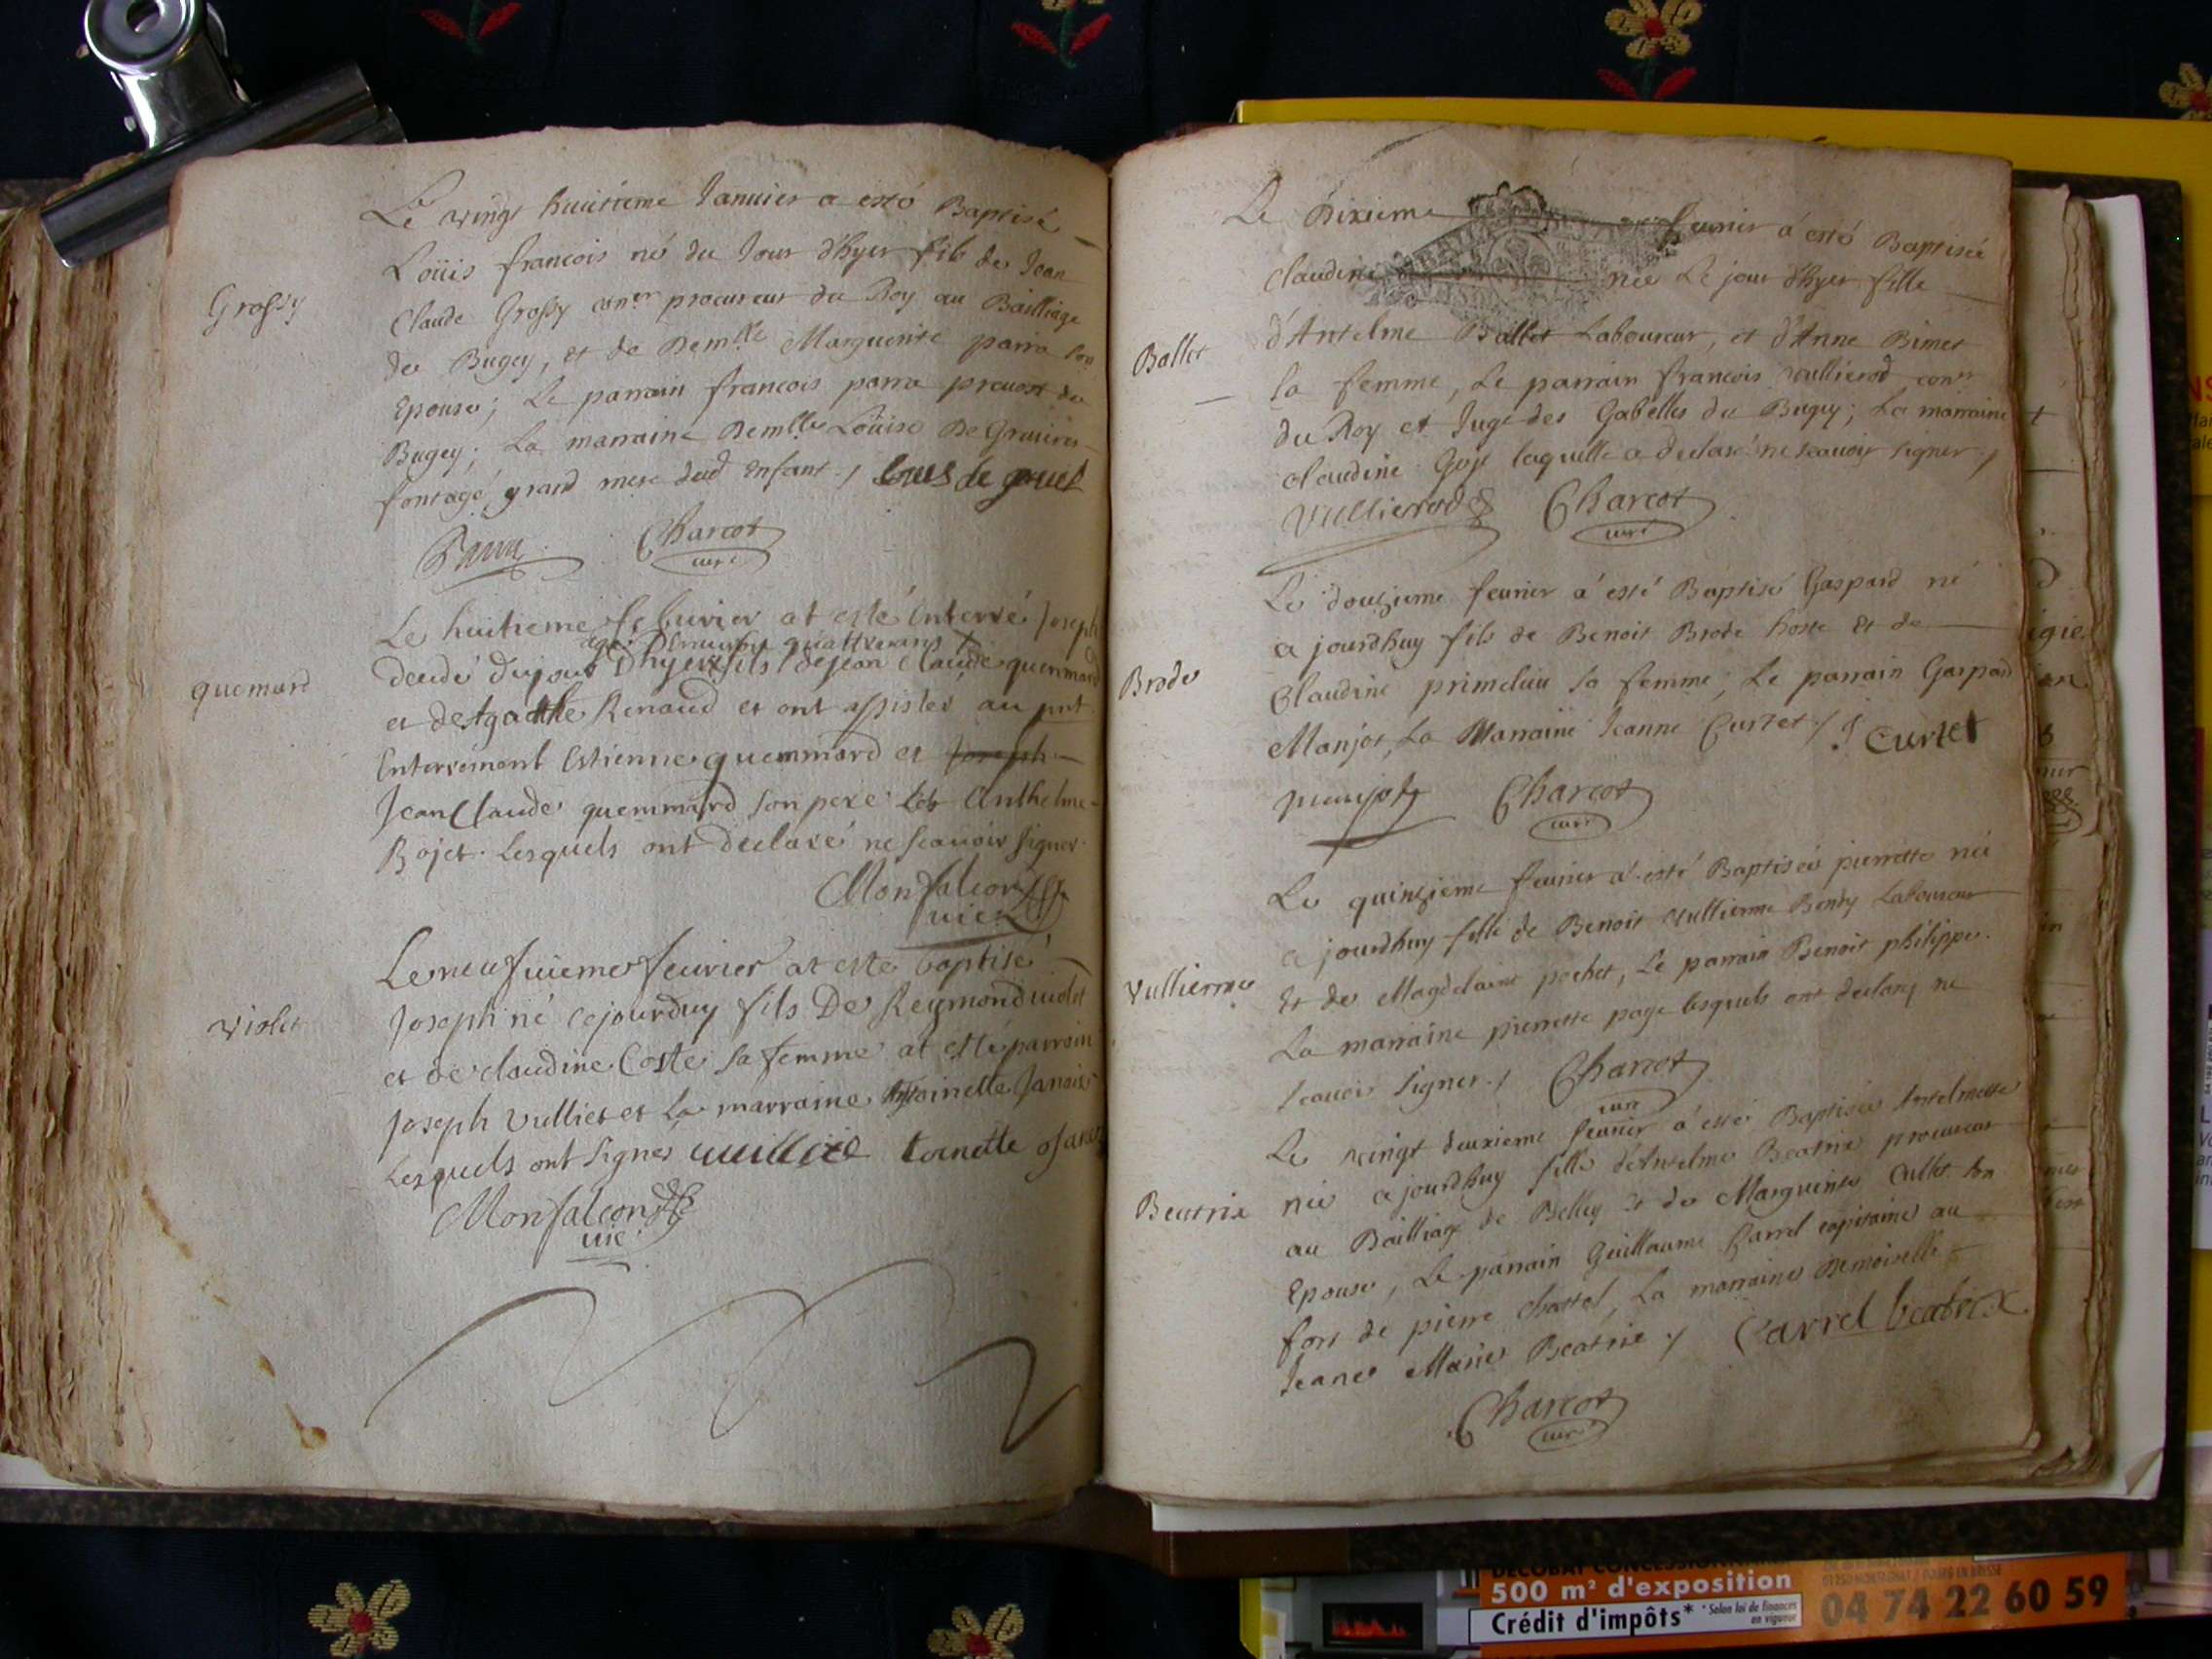 Grossy
Le vingt huitieme Januier a esté Baptisé
Loüis francois né du Jour d'hyer fils de Jean
Claude Grossy con.er procureur du Roy au Bailliage
du Bugey, et de Dem.lle Marguerite parra son
Epouse; Le parrain francois parra preuost du
Bugey; La marraine Dem.lle Loüise De
grand mere dud enfant./
Parra Charcot
curé
quemard
Le huitieme feburier at esté Enterré Joseph
agé
decedé du jour Dhyer fils de jean Claude quemmard
et de Agathe Renaud et ont assistés au pnt
Enterrement Estienne quemmard et Joseph
Jean Claude quemmard son pere Anthelme
Bojet. Lesquels ont declaré ne scauoir signer
Monfalcon
vic
Violet
Le neufuieme feuvrier at esté baptisé
Joseph né cejourduy fils De Reymond violet
et de claudine Coste sa femme at esté parrain
Joseph Vulliet et La marraine Antoinette Janoix
Lesquels ont signés
Monfalcon
vic
Ballet
Le Dixieme feurier á esté Baptiseé
Claudine neé Le jour d'hyer fille
d'Antelme Ballet Laboureur, et d'Anne Bimet
sa femme, Le parrain francois Vullierod con.er
du Roy et Juge des Gabelles du Bugey; La marraine
claudine Goje laquelle a declaré ne scauoir signer./
Vullierod Charcot
curé
Brode
Le douzieme feurier á esté Baptisé Gaspard né
a jourdhuy fils de Benoit Brode hoste et de
Claudine primelieu sa femme; Le parrain Gaspard
Manjot, La Marraine Jeanne Curtet./ J Curtet
manjot Charcot
curé
Vullierme
Le quinzieme feurier á esté Baptisée pierrette née
a jourdhuy fille de Benoit Vullierme Bondy Laboureur
Et de Magdelaine pochet, Le parrain Benoit philippe.
La marraine pierrette page lesquels ont declaré ne
scauoir signer./ Charcot
curé
Beatrix
Le vingt deuxieme feurier á esté Baptisée Antelmette
née a jourdhuy fille d'Antelme Beatrix procureur
au Bailliage de Belley et de Marguerite Cullet son
Epouse, Le parrain Guillaume Carrel capitaine au
fort de pierre chattel, La marraine Demoiselle
Jeane Marie Beatrix./ Carrel beatrix
Charcot
curé
500 m² d'exposition
Crédit d'impôts* *Selon loi de finances
en vigueur
04 74 22 60 59